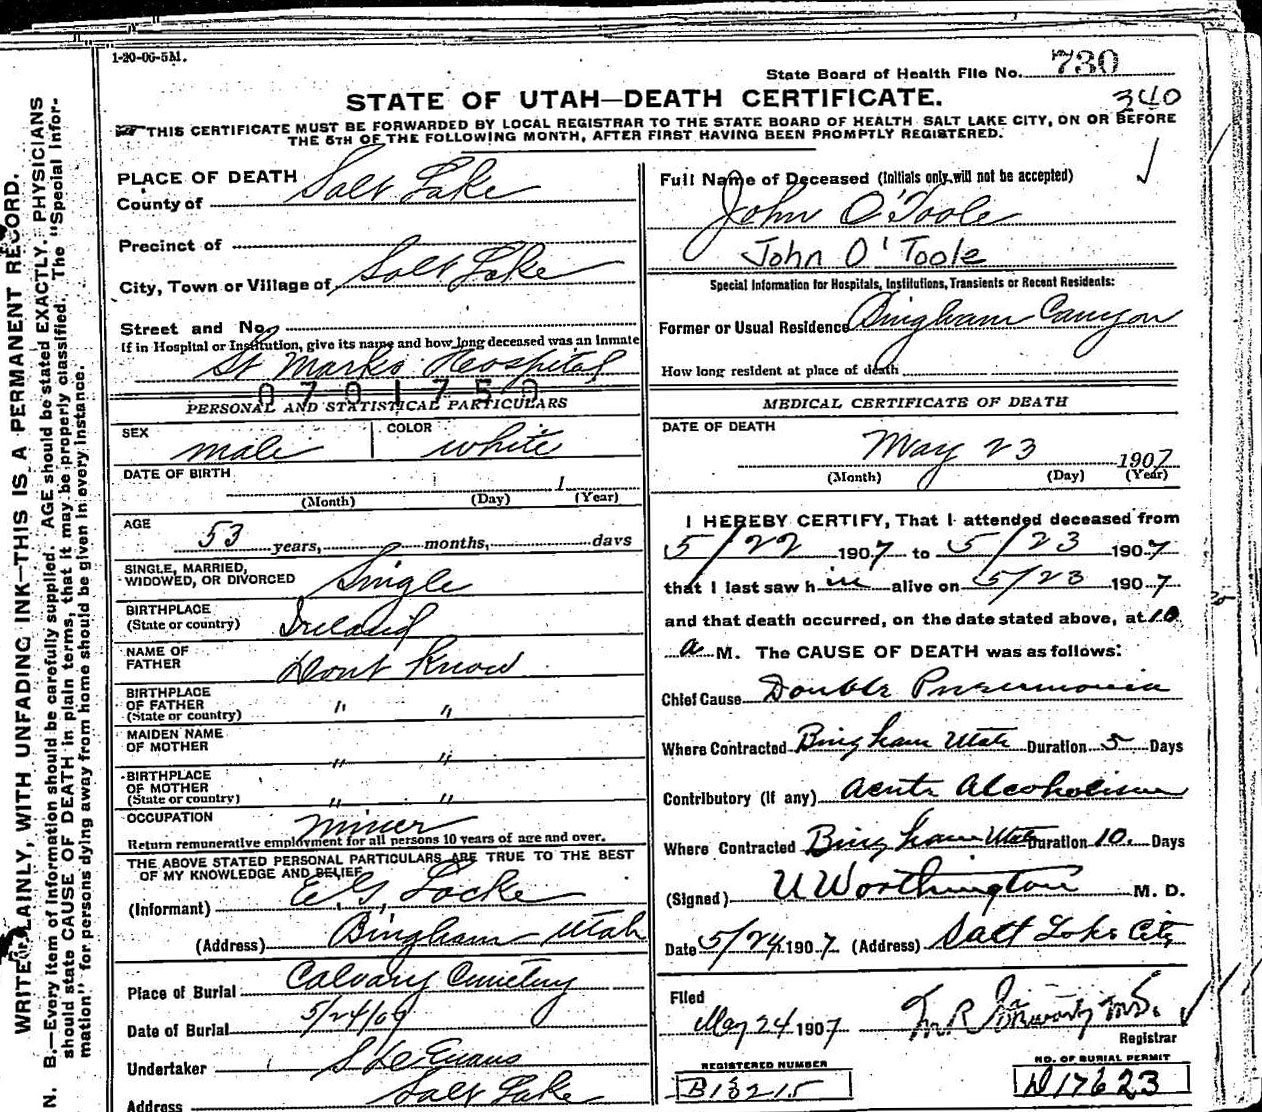 1-20-06-5M.
State Board of Health File No. 730
STATE OF UTAH—DEATH CERTIFICATE.
340
THIS CERTIFICATE MUST BE FORWARDED BY LOCAL REGISTRAR TO THE STATE BOARD OF HEALTH SALT LAKE CITY, ON OR BEFORE
THE 5TH OF THE FOLLOWING MONTH, AFTER FIRST HAVING BEEN PROMPTLY REGISTERED.
WRITE PLAINLY, WITH UNFADING INK—THIS IS A PERMANENT RECORD.
N. B.—Every item of information should be carefully supplied. AGE should be stated EXACTLY. PHYSICIANS
should state CAUSE OF DEATH in plain terms, that it may be properly classified. The "Special Infor-
mation" for persons dying away from home should be given in every instance.
PLACE OF DEATH
County of Salt Lake
Precinct of
City, Town or Village of Salt Lake
Street and No.
If in Hospital or Institution, give its name and how long deceased was an Inmate
St Marks Hospital
0701750
PERSONAL AND STATISTICAL PARTICULARS
SEX male COLOR white
DATE OF BIRTH 1
(Month) (Day) (Year)
AGE
53 years, months, days
SINGLE, MARRIED,
WIDOWED, OR DIVORCED Single
BIRTHPLACE
(State or country) Ireland
NAME OF
FATHER Dont Know
BIRTHPLACE
OF FATHER
(State or country) " "
MAIDEN NAME
OF MOTHER " "
BIRTHPLACE
OF MOTHER
(State or country) " "
OCCUPATION miner
Return remunerative employment for all persons 10 years of age and over.
THE ABOVE STATED PERSONAL PARTICULARS ARE TRUE TO THE BEST
OF MY KNOWLEDGE AND BELIEF
(Informant) E. G. Locke
(Address) Bingham Utah
Place of Burial Calvary Cemetery
Date of Burial 5/24/09
Undertaker S D Evans
Address Salt Lake
Full Name of Deceased (Initials only will not be accepted)
John O'Toole
John O'Toole
Special Information for Hospitals, Institutions, Transients or Recent Residents:
Former or Usual Residence Bingham Canyon
How long resident at place of death
MEDICAL CERTIFICATE OF DEATH
DATE OF DEATH
May 23 1907
(Month) (Day) (Year)
I HEREBY CERTIFY, That I attended deceased from
5/22 1907 to 5/23 1907
that I last saw him alive on 5/23 1907
and that death occurred, on the date stated above, at 10
a M. The CAUSE OF DEATH was as follows:
Chief Cause Double Pneumonia
Where Contracted Bingham Utah Duration 5 Days
Contributory (if any) acute Alcoholism
Where Contracted Bingham Utah Duration 10. Days
(Signed) U Worthington M. D.
Date 5/24 1907 (Address) Salt Lake City
Filed
May 24 1907
Registrar
REGISTERED NUMBER
B13215
NO. OF BURIAL PERMIT
D17623